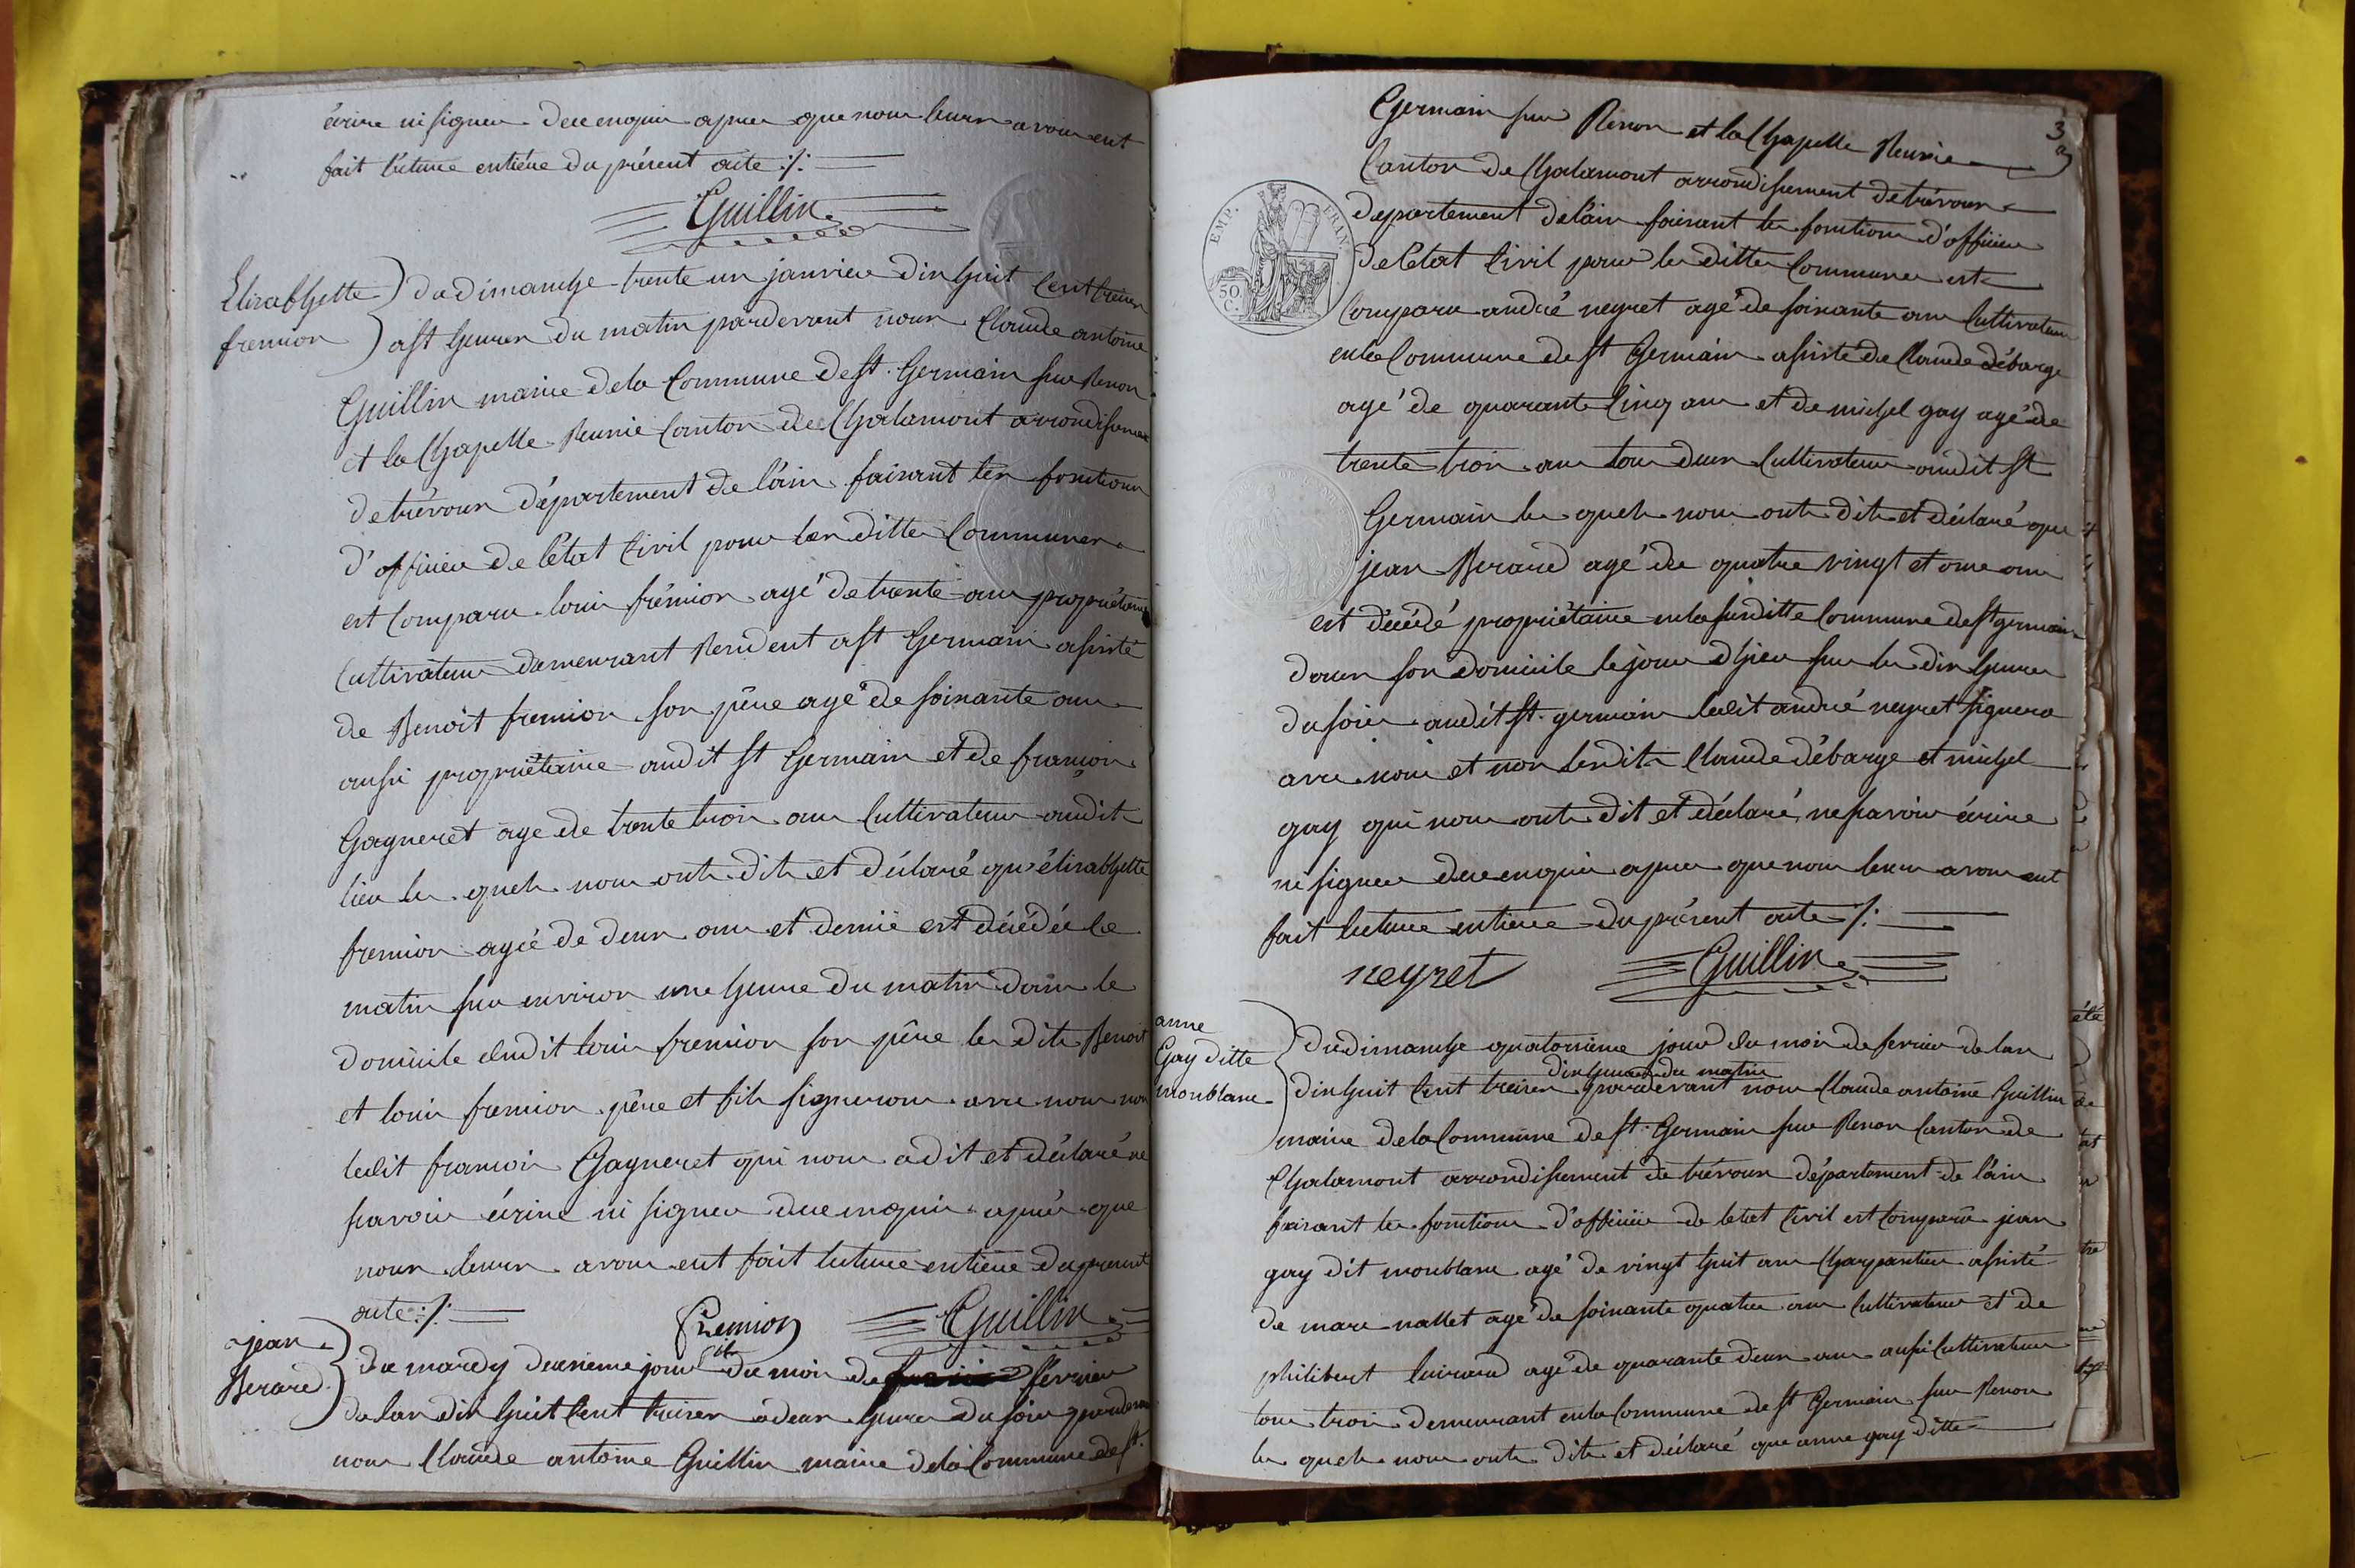 écrire ni signer de ce enquis apres que nous leurs avons eut
fait lecture entiére du présent acte ./.
Guillin
Elizabhette
fremion
du dimanche trente un janvier dix huit cent treize
a st heures du matin pardevant nous Claude antoine
Guillin maire de la Commune de st. Germain sur Renon
et la Chapelle Reunie Canton de Chalamont arrondissement
de trévoux département de l'ain faisant les fonctions
d'officier de létat Civil pour les dittes Communes
est Comparu louis frémion agé de trente ans propriétaire
Cultivateur demeurant Resident a st Germain assisté
de Benoit fremion son pére agé de soixante ans
aussi propriétaire audit st Germain et de françois
Gagneret age de trente trois ans Cultivateur audit
lieu les quels nous onts dits et déclaré qu'élisabhette
fremion agée de deux ans et demie est décédée le
matin sur environ une heure du matin dans le
domicile dudit louis fremion son pére les dits Benoit
et louis fremion pére et fils signerons avec nous non
ledit francois Gagneret qui nous a dit et déclaré ne
savoir écrire ni signer de ce enquis apres que
nous leurs avons eut fait lecture entiere du present
acte ./.
fremion
fils
Guillin
jean
Berard
du mardy deuxieme jour du mois de février
de lan dix huit Cent treize a deux heures du soir pardevant
nous Claude antoine Guillin maire de la Commune de st.
3
Germain sur Renon et la Chapelle Reunie
Canton de Chalamont arrondissement de trévoux
département de l'ain faisant les fonctions d'officier
de létat Civil pour les dittes Communes est
Comparu andré neyret agé de soixante ans Cultivateur
en la Commune de st Germain assisté de Claude débarge
agé de quarante Cinq ans et de michel gay agé de
trente trois ans tous deux Cultivateurs audit st
Germain les quels nous onts dits et déclaré que
jean Berard agé de quatre vingt et onze ans
est décédé propriétaire en la susditte Commune de st germain
dans son domicile le jour dhier sur les dix heures
du soir audit st. germain ledit andré neyret signera
avec nous et non lesdits Claude débarge et michel
gay qui nous onts dit et déclaré ne savoir écrire
ni signer de ce enquis apres que nous leurs avons eut
fait lecture entiere du présent acte ./.
neyret
Guillin
anne
Gay ditte
monblanc
du dimanche quatorzieme jour du mois de fevrier de lan
dix heures du matin
dix huit Cent treize pardevant nous Claude antoine Guillin
maire de la Commune de st. Germain sur Renon Canton de
Chalamont arrondissement de trévoux département de l'ain
faisant les fonctions d'officier de letat Civil est Comparu jean
gay dit monblanc agé de vingt huit ans Charpantier assisté
de marc nallet agé de soixante quatre ans Cultivateur et de
philibert agé de quarante deux ans aussi Cultivateur
tous trois demeurant en la Commune de st Germain sur Renon
les quels nous onts dits et déclaré que anne gay ditte